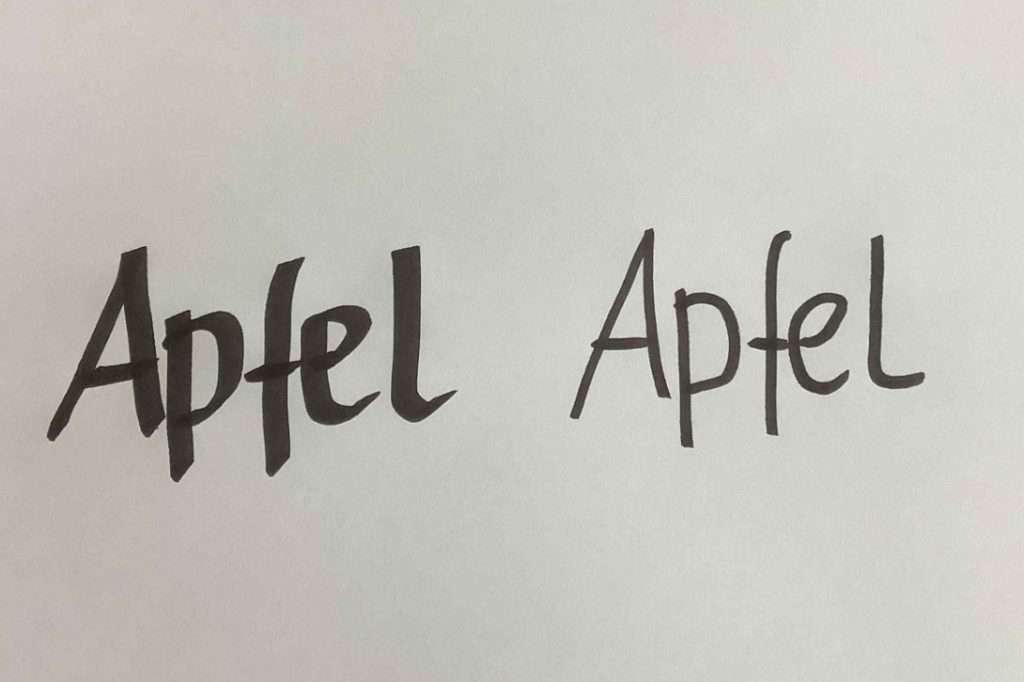 Apfel Apfel